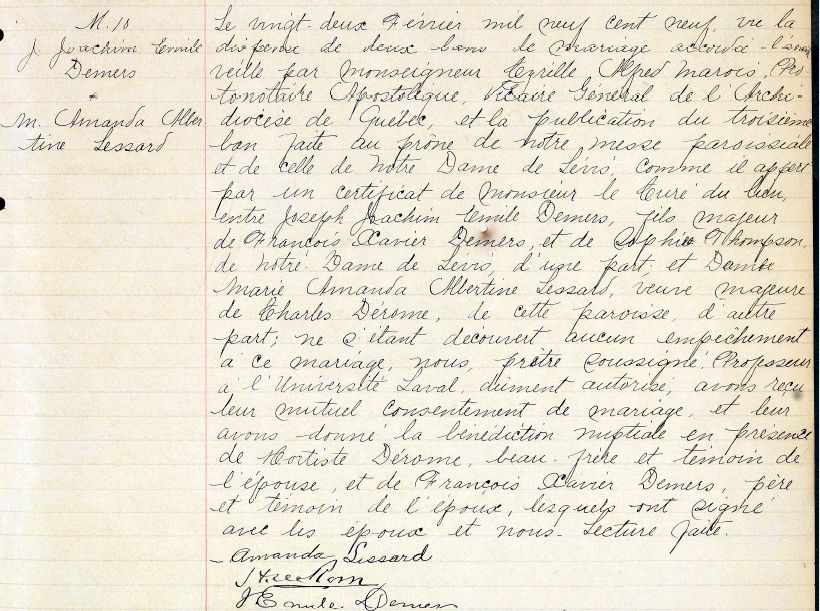 M. 10
J. Joachim Emile
Demers
&
M. Amanda Alber
tine Lessard
Le vingt-deux Février mil neuf cent neuf, vu la
dispense de deux bans de mariage accordée
veille par Monseigneur Cyrille Alfred Marois, Pro
tonotaire Apostolique, Vicaire Général de l'Archi-
diocèse de Québec, et la publication du troisième
ban faite au prône de notre messe paroissiale
et de celle de Notre Dame de Lévis, comme il appert
par un certificat de Monsieur le Curé du lieu,
entre Joseph Joachim Emile Demers, fils majeur
de François Xavier Demers, et de Sophie Thompson,
de Notre Dame de Lévis, d'une part; et Dame
Marie Amanda Albertine Lessard, veuve majeure
de Charles Dérome, de cette paroisse, d'autre
part; ne s'étant découvert aucun empêchement
à ce mariage, nous, prêtre soussigné, Professeur
à l'Université Laval, dûment autorisé, avons reçu
leur mutuel consentement de mariage, et leur
avons donné la bénédiction nuptiale en présence
de Dérome, beau-frère et témoin de
l'épouse, et de François Xavier Demers, père
et témoin de l'époux, lesquels ont signé
avec les époux et nous. Lecture faite.
Amanda Lessard
J Emile Demers